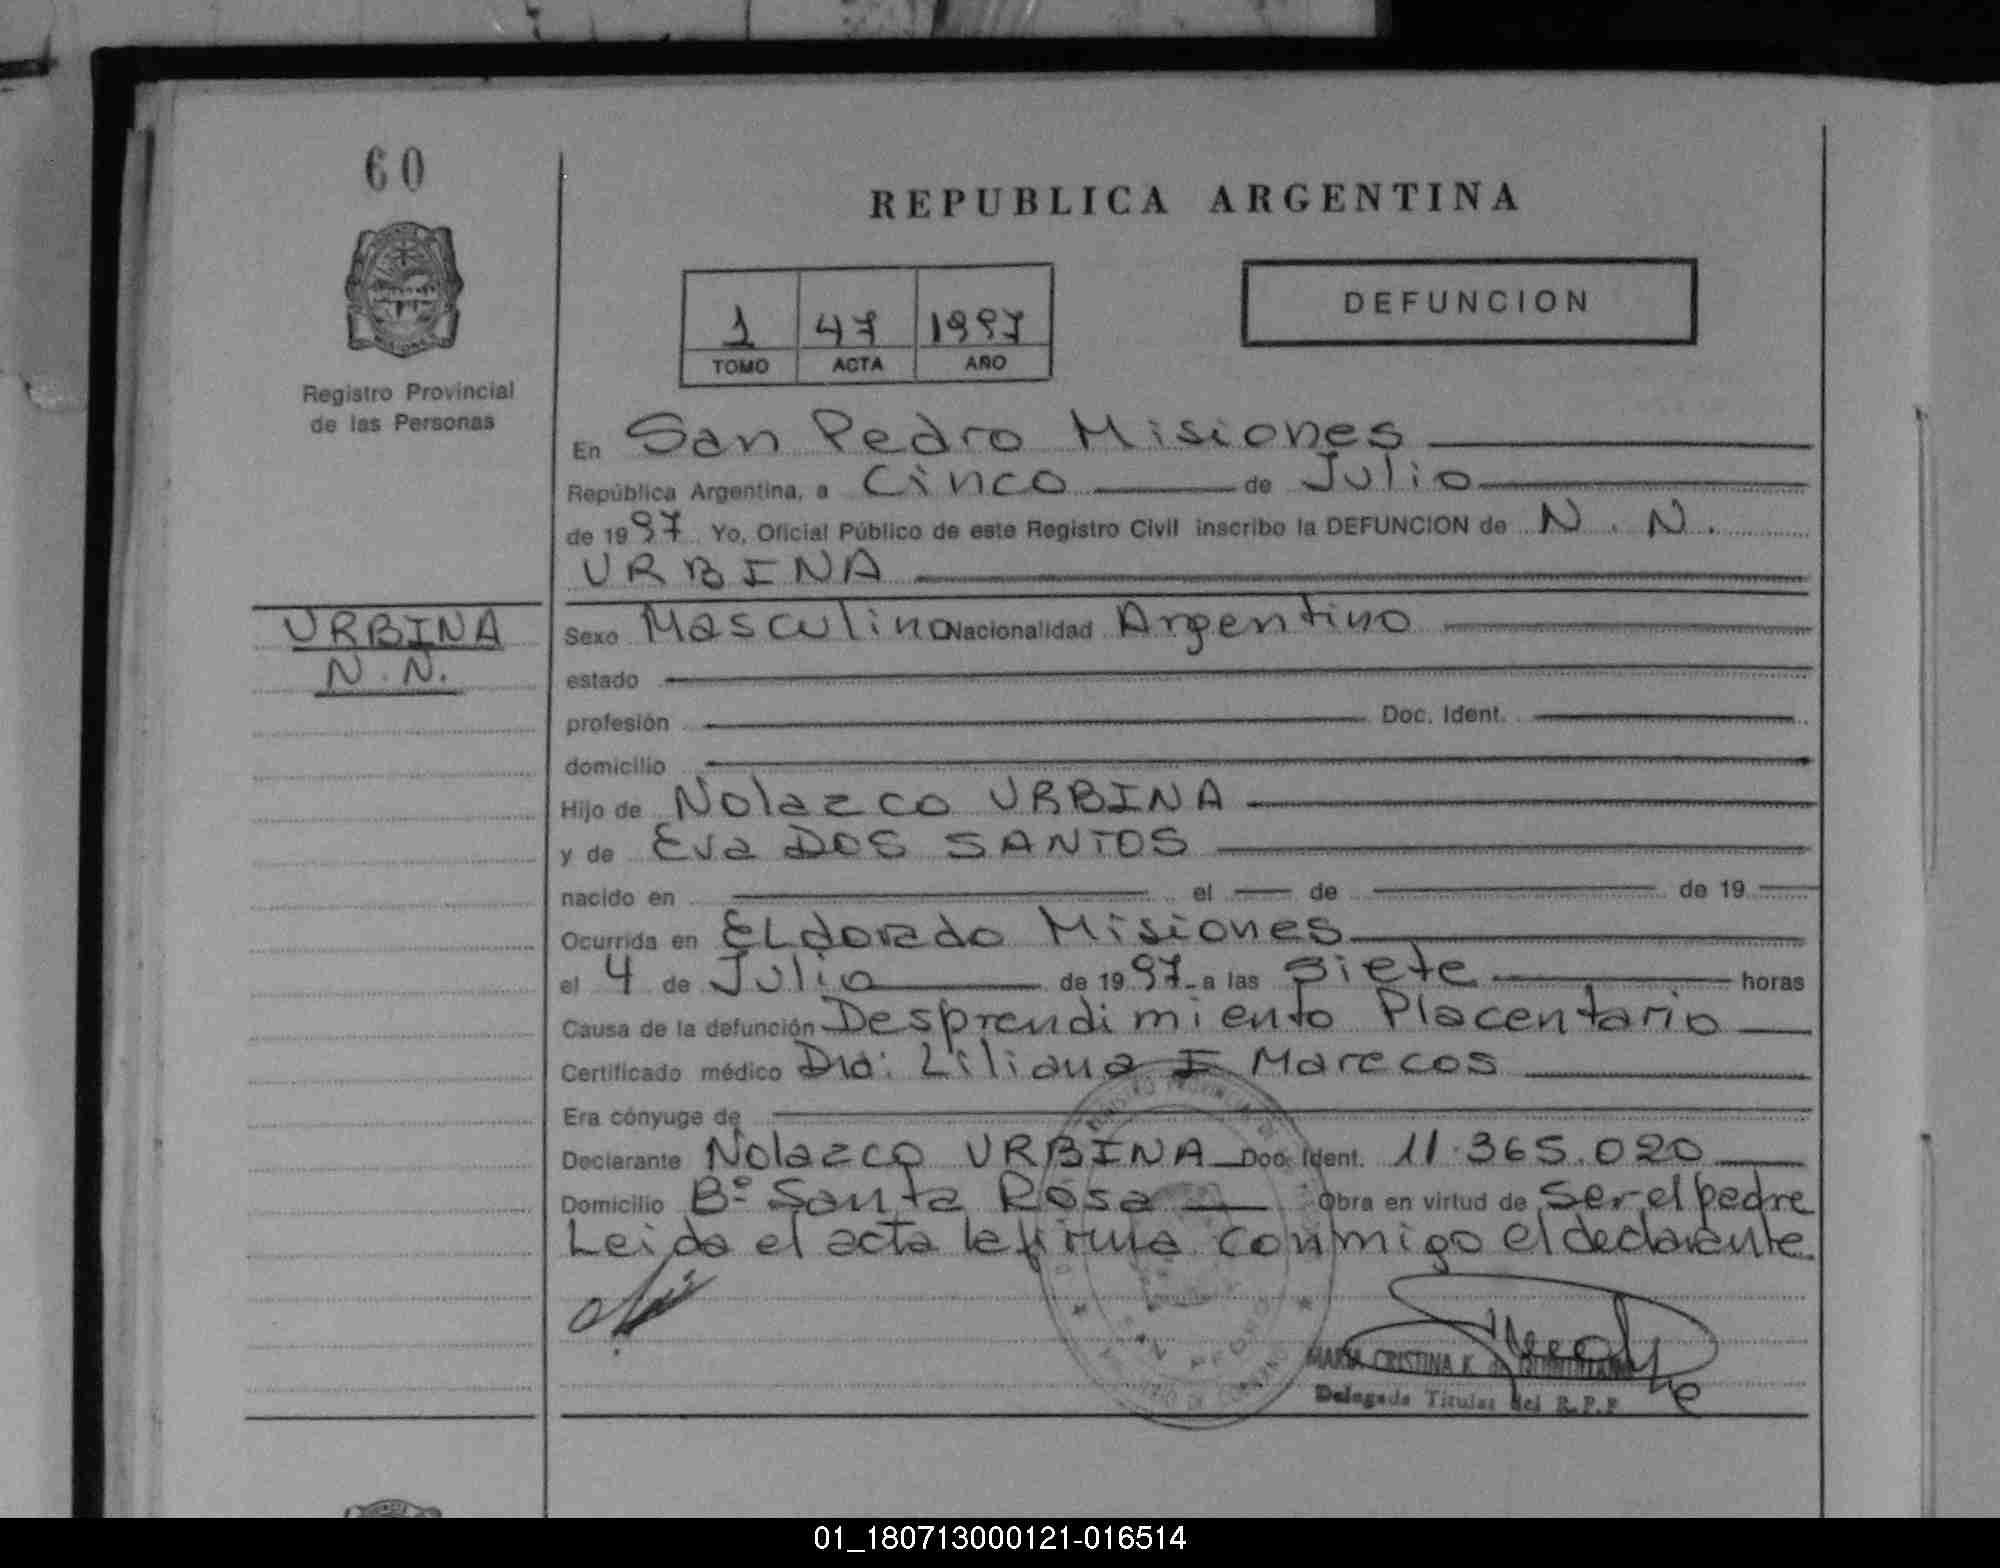 60
REPUBLICA ARGENTINA
1 47 1997
TOMO ACTA AÑO
DEFUNCION
Registro Provincial
de las Personas
En San Pedro Misiones
República Argentina, a Cinco de Julio
de 1997 Yo, Oficial Público de este Registro Civil inscribo la DEFUNCION de N. N.
URBINA
URBINA
N. N.
Sexo Masculino Nacionalidad Argentino
estado
profesión Doc. Ident.
domicilio
Hijo de Nolazco URBINA
y de Eva DOS SANTOS
nacido en el de de 19
Ocurrida en ELdorado Misiones
el 4 de Julio de 1997 a las siete horas
Causa de la defunción Desprendimiento Placentario
Certificado médico Dra: Liliana I Marecos
Era cónyuge de
Declarante Nolazco URBINA Doc. Ident. 11.365.020
Domicilio Bº Santa Rosa Obra en virtud de ser el padre
Leida el acta la firma conmigo el declarante
MARIA CRISTINA K. de
Delegada Titular del R.P.P
01_180713000121-016514